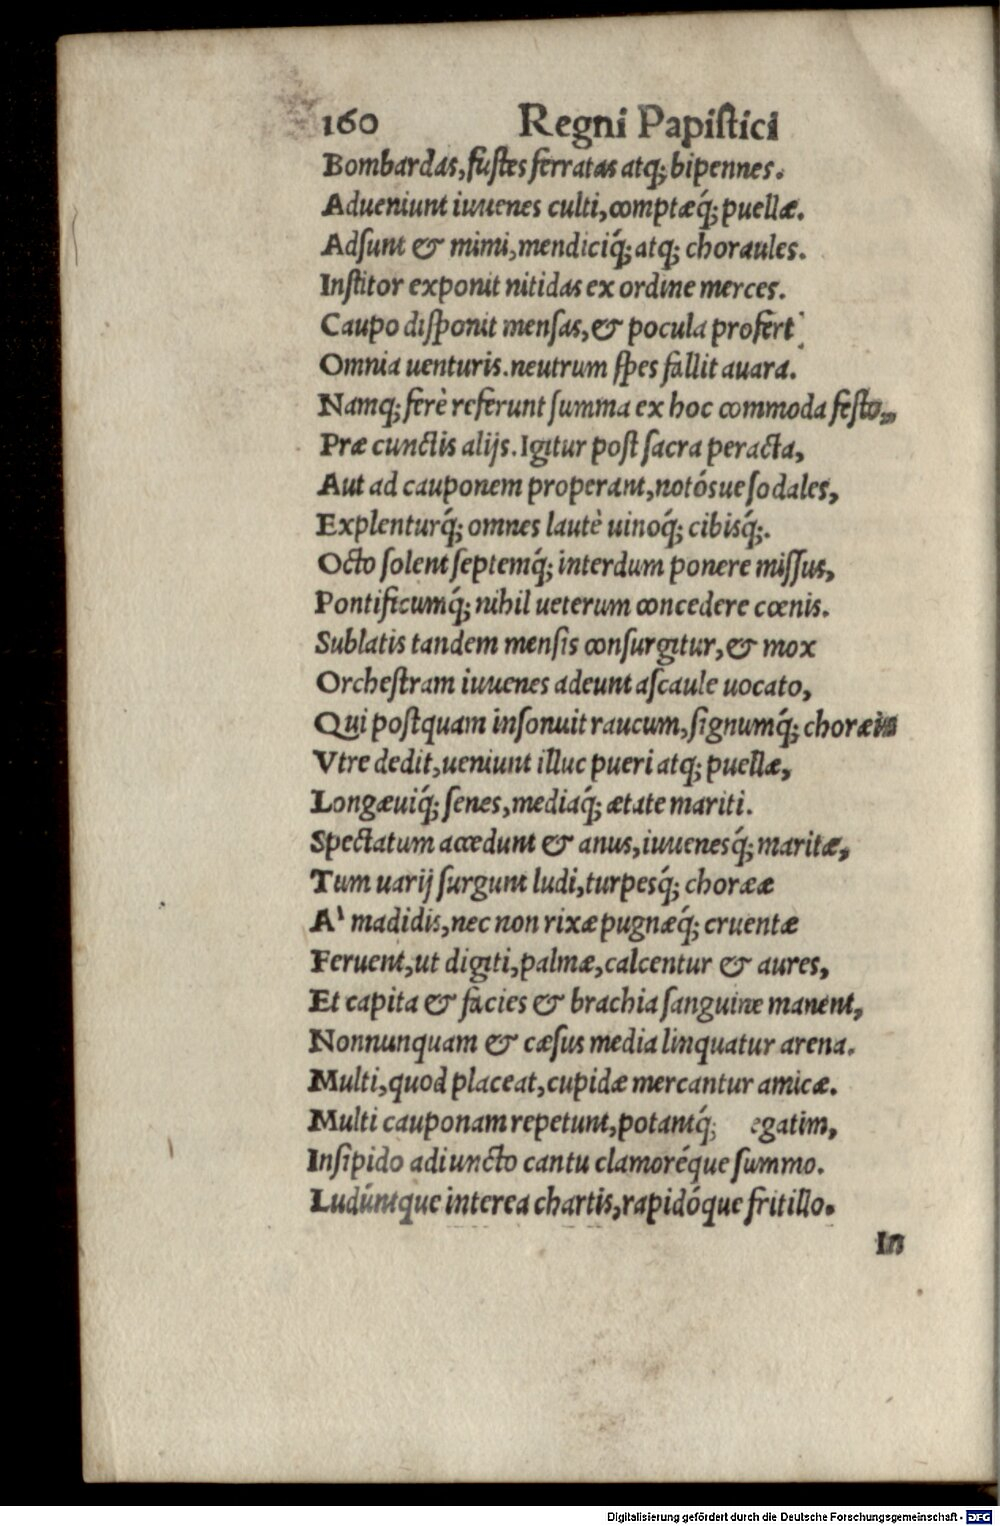 160 Regni Papistici
Bombardas, fustes ferratas atq; bipennes.
Adueniunt iuuenes culti, comptæq́; puellæ.
Adsunt & mimi, mendiciq́; atq; choraules.
Institor exponit nitidas ex ordine merces.
Caupo disponit mensas, & pocula profert
Omnia uenturis. neutrum spes fallit auara.
Namq; ferè referunt summa ex hoc commoda festo,
Præ cunctis alijs. Igitur post sacra peracta,
Aut ad cauponem properant, notósue sodales,
Explenturq́; omnes lautè uinoq́; cibisq́;.
Octo solent septemq́; interdum ponere missus,
Pontificumq́; nihil ueterum concedere cœnis.
Sublatis tandem mensis consurgitur, & mox
Orchestram iuuenes adeunt ascaule uocato,
Qui postquam insonuit raucum, signumq́; choræis
Vtre dedit, ueniunt illuc pueri atq; puellæ,
Longæuiq́; senes, mediaq́; ætate mariti.
Spectatum accedunt & anus, iuuenesq́; maritæ,
Tum uarij surgunt ludi, turpesq́; choreæ
A' madidis, nec non rixæ pugnæq́; cruentæ
Feruent, ut digiti, palmæ, calcentur & aures,
Et capita & facies & brachia sanguine manent,
Nonnunquam & cæsus media linquatur arena.
Multi, quod placeat, cupidæ mercantur amicæ.
Multi cauponam repetunt, potantq́; egatim,
Insipido adiuncto cantu clamoréque summo.
Ludúntque interea chartis, rapidóque fritillo.
In
Digitalisierung gefördert durch die Deutsche Forschungsgemeinschaft - DFG